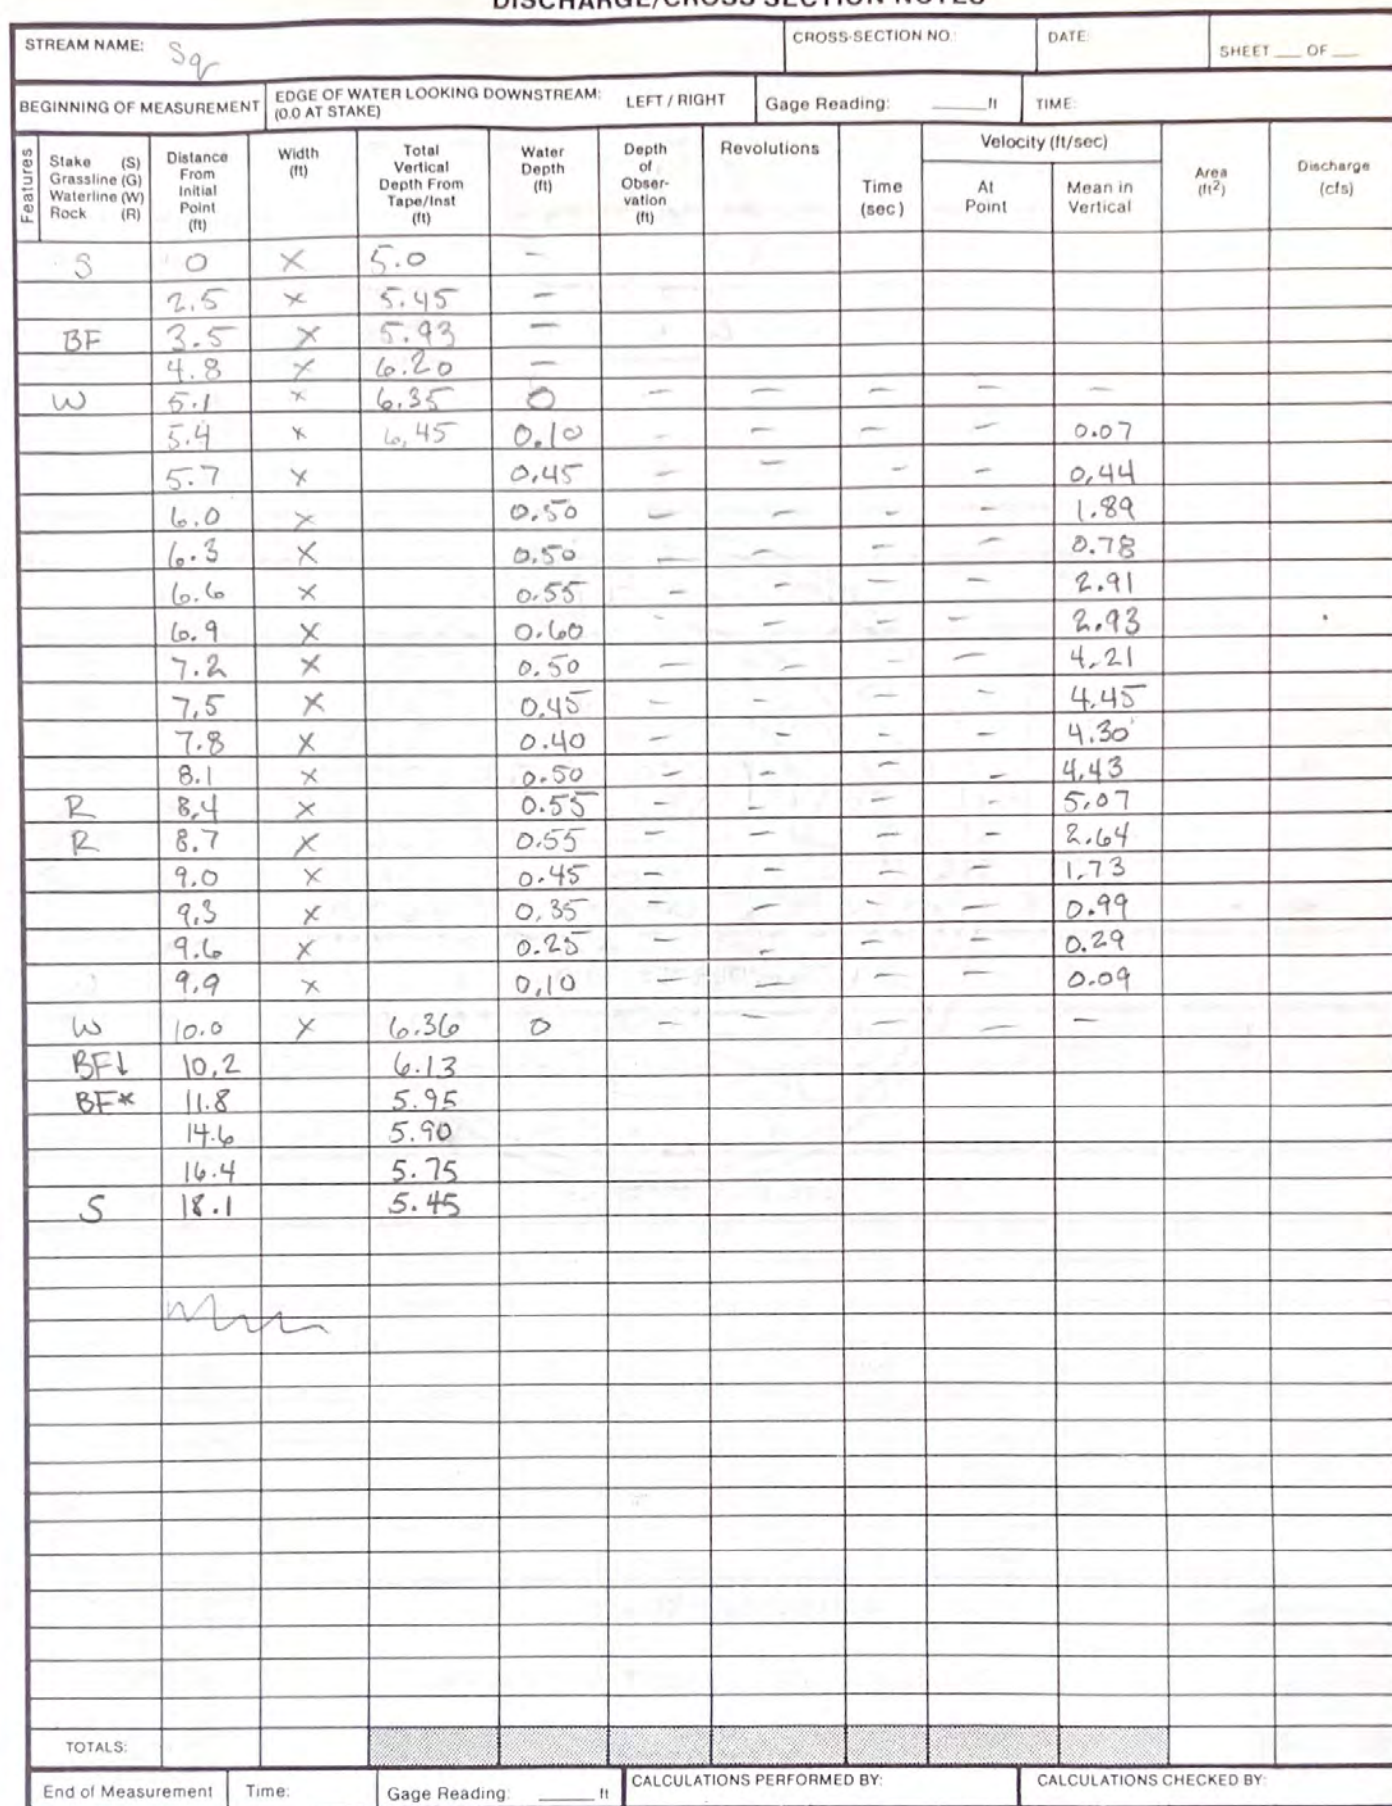 DISCHARGE/CROSS-SECTION NOTES
STREAM NAME: Sq CROSS-SECTION NO.: DATE: SHEET ___ OF ___
BEGINNING OF MEASUREMENT EDGE OF WATER LOOKING DOWNSTREAM: (0.0 AT STAKE) LEFT / RIGHT Gage Reading: _____ft TIME:
Features Stake (S) Grassline (G) Waterline (W) Rock (R) Distance From Initial Point (ft) Width (ft) Total Vertical Depth From Tape/Inst (ft) Water Depth (ft) Depth of Obser-vation (ft) Revolutions Time (sec) Velocity (ft/sec) At Point Mean in Vertical Area (ft2) Discharge (cfs)
S 0 X 5.0 -
2.5 X 5.45 -
BF 3.5 X 5.93 -
4.8 X 6.20 -
W 5.1 X 6.35 0 - - - - -
5.4 X 6.45 0.10 - - - - 0.07
5.7 X 0.45 - - - - 0.44
6.0 X 0.50 - - - - 1.89
6.3 X 0.50 - - - - 0.78
6.6 X 0.55 - - - - 2.91
6.9 X 0.60 - - - - 2.93
7.2 X 0.50 - - - - 4.21
7.5 X 0.45 - - - - 4.45
7.8 X 0.40 - - - - 4.30
8.1 X 0.50 - - - - 4.43
R 8.4 X 0.55 - - - - 5.07
R 8.7 X 0.55 - - - - 2.64
9.0 X 0.45 - - - - 1.73
9.3 X 0.35 - - - - 0.99
9.6 X 0.25 - - - - 0.29
9.9 X 0.10 - - - - 0.09
W 10.0 X 6.36 0 - - - - -
BF↓ 10.2 6.13
BF* 11.8 5.95
14.6 5.90
16.4 5.75
S 18.1 5.45
TOTALS:
End of Measurement Time: Gage Reading: _____ ft CALCULATIONS PERFORMED BY: CALCULATIONS CHECKED BY: